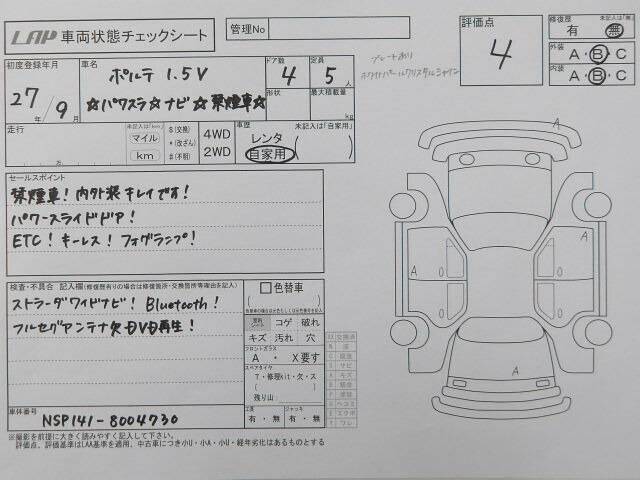 LAP 車両状態チェックシート
管理No
評価点
4
修復歴 未記入は「無」
有 無
外装 A・B・C
内装 A・B・C
プレートあり
ホワイトパールクリスタルシャイン
初度登録年月
27年 9月
車名
ポルテ 1.5V
☆パワスラ☆ナビ☆禁煙車☆
ドア数
4
定員
5人
形状
最大積載量
kg
走行
未記入は「km」
マイル
km
$(交換)
*(改ざん)
#(不明)
4WD
2WD
車歴 未記入は「自家用」
レンタ
自家用
セールスポイント
禁煙車!内外装キレイです!
パワースライドドア!
ETC!キーレス!フォグランプ!
検査・不具合 記入欄(修復歴有りの場合は修復箇所・交換箇所等理由を記入)
ストラーダワイドナビ! Bluetooth!
フルセグアンテナ欠 DVD再生!
色替車
コゲ 破れ
キズ 汚れ 穴
フロントガラス
A ・ X要す
スペアタイヤ
T・修理kit・欠・ス
残り山
工具
有・無
ジャッキ
有・無
車体番号
NSP141-8004730
※撮影を前提に大きく読みやすく記入して下さい。
評価点、評価基準はLAA基準を適用、中古車につき小U・小A・小U・経年劣化はあるものとする
A
A
A
A